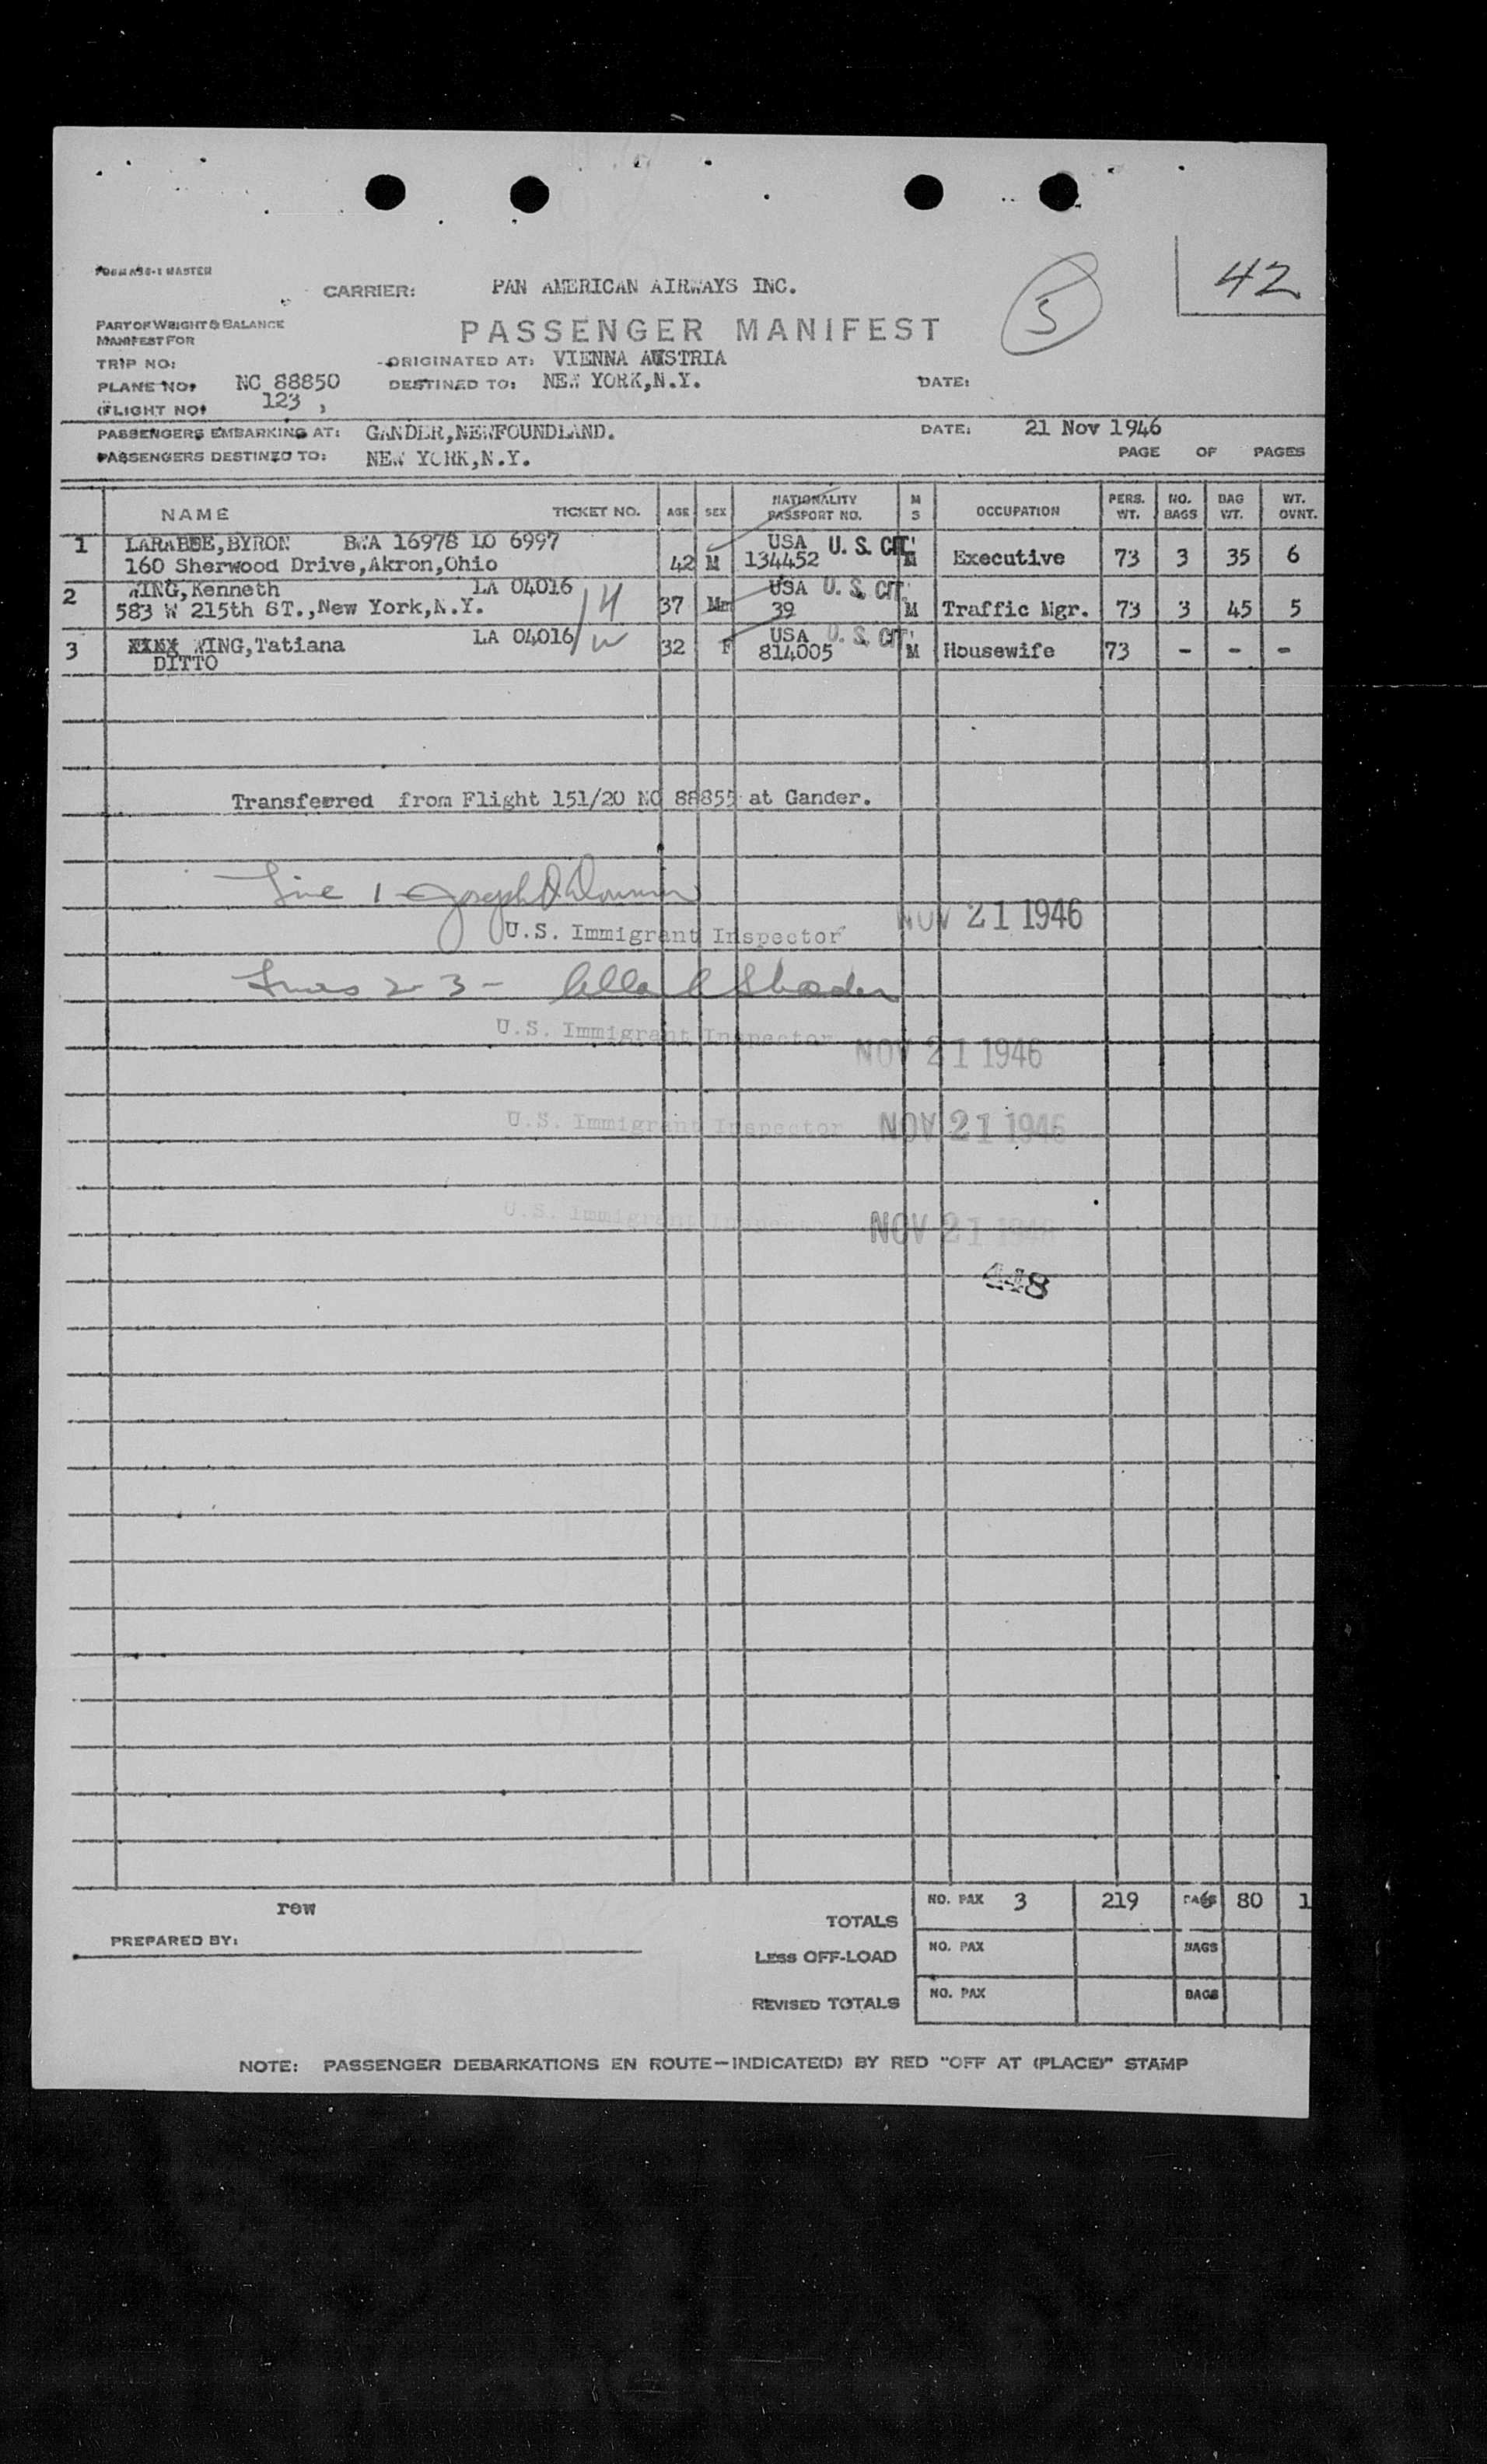 FORM A50-1 MASTER
CARRIER: PAN AMERICAN AIRWAYS INC.
5
42
PART OF WEIGHT & BALANCE
MANIFEST FOR
PASSENGER MANIFEST
TRIP NO:
ORIGINATED AT: VIENNA AUSTRIA
PLANE NO: NC 88850
DESTINED TO: NEW YORK,N.Y.
DATE:
(FLIGHT NO: 123 )
PASSENGERS EMBARKING AT: GANDER,NEWFOUNDLAND.
DATE: 21 Nov 1946
PASSENGERS DESTINED TO: NEW YORK,N.Y.
PAGE OF PAGES
NAME TICKET NO. AGE SEX NATIONALITY PASSPORT NO. M S OCCUPATION PERS. WT. NO. BAGS BAG WT. WT. OVNT.
1 LARABEE,BYRON BWA 16978 LO 6997 USA U.S. CIT
160 Sherwood Drive,Akron,Ohio 42 M 134452 M Executive 73 3 35 6
2 WING,Kenneth LA 04016 /H USA U.S. CIT
583 W 215th ST.,New York,N.Y. 37 39 M Traffic Mgr. 73 3 45 5
3 WING,Tatiana LA 04016 /W 32 F USA U.S. CIT
DITTO 814005 M Housewife 73 - - -
Transferred from Flight 151/20 NC 88855 at Gander.
Line 1 - Joseph
U.S. Immigrant Inspector NOV 21 1946
Lines 2 3 -
U.S. Immigrant Inspector NOV 21 1946
U.S. Immigrant Inspector NOV 21 1946
U.S. Immigrant Inspector NOV 21 1946
448
rew
TOTALS NO. PAX 3 219 BAGS 6 80 1
PREPARED BY:
LESS OFF-LOAD NO. PAX BAGS
REVISED TOTALS NO. PAX BAGS
NOTE: PASSENGER DEBARKATIONS EN ROUTE—INDICATE(D) BY RED "OFF AT (PLACE)" STAMP